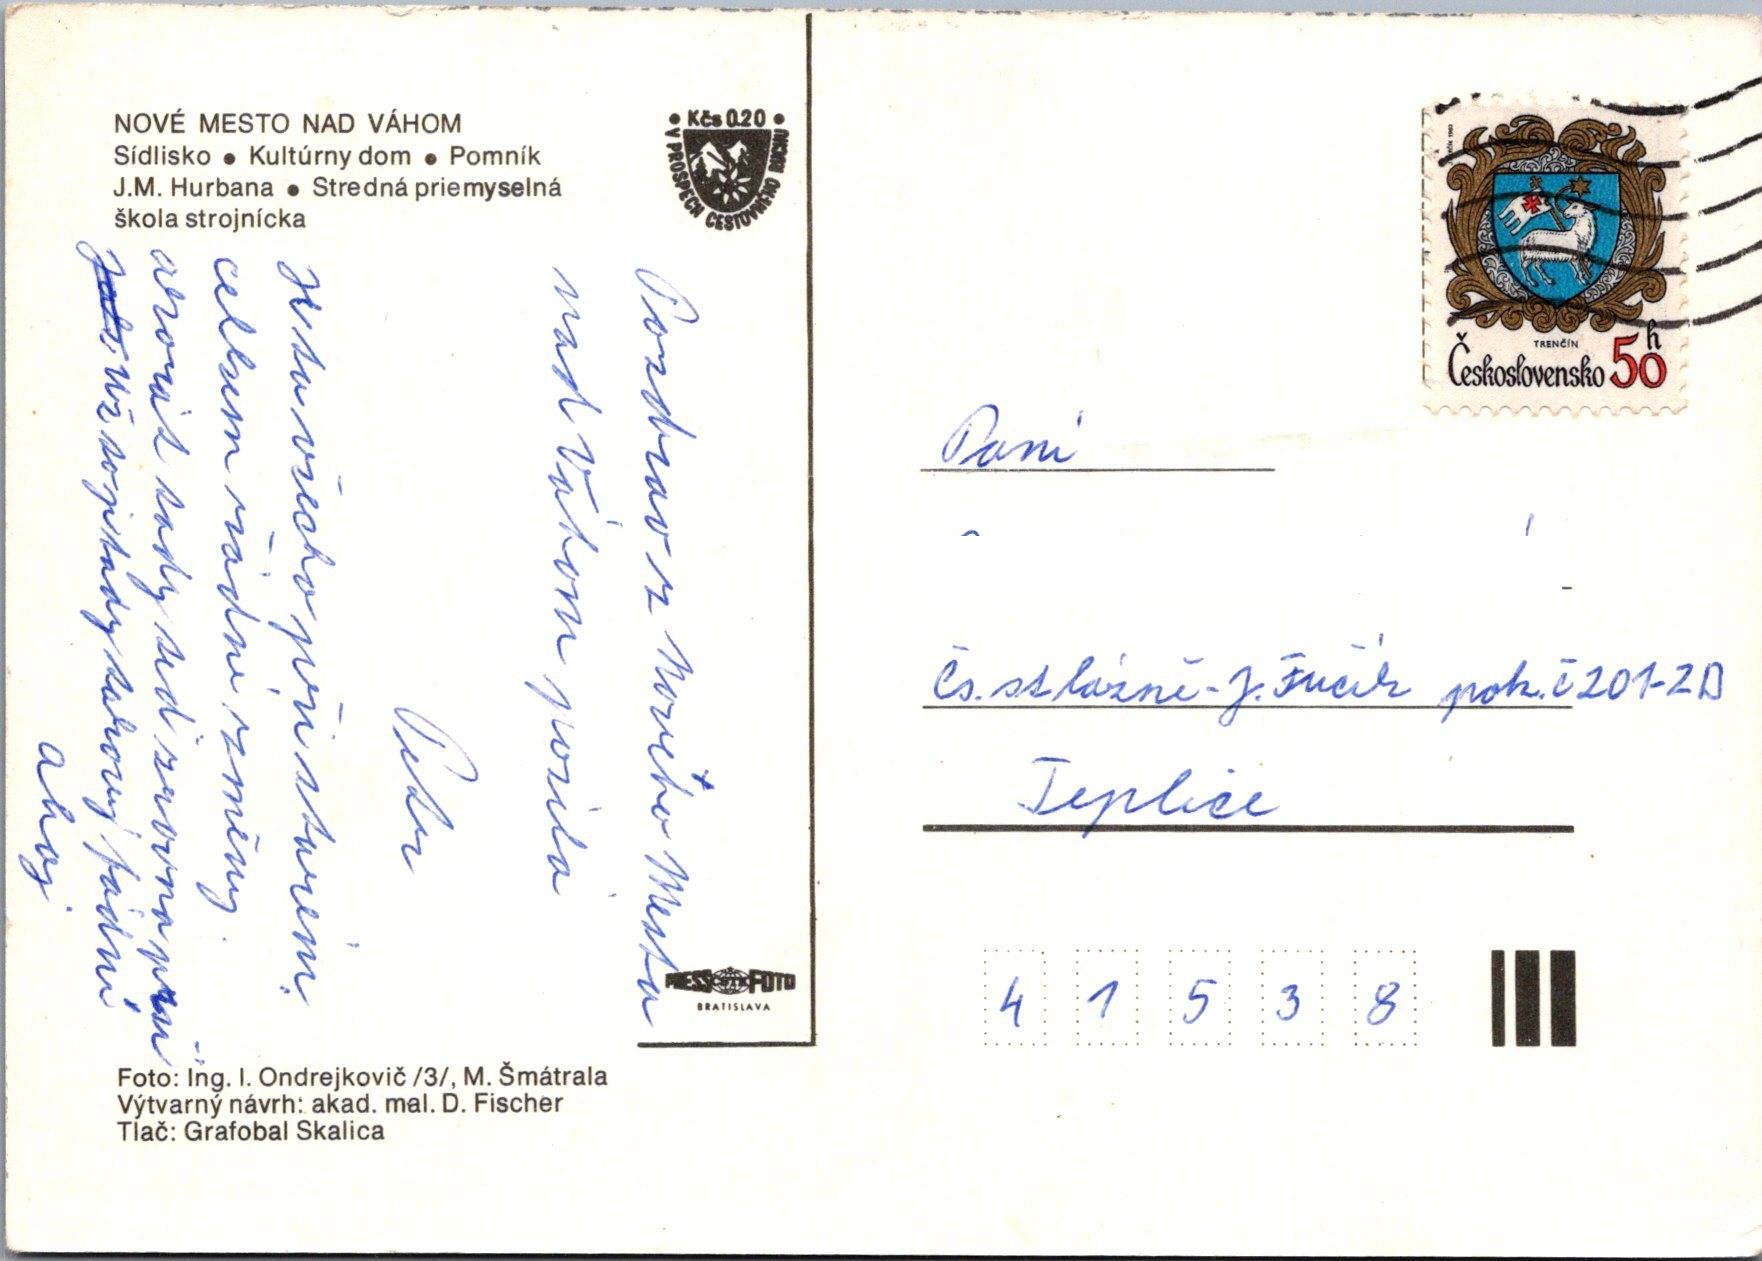 NOVÉ MESTO NAD VÁHOM
Sídlisko ● Kultúrny dom ● Pomník
J.M. Hurbana ● Stredná priemyselná
škola strojnícka
• Kčs 0.20 •
V PROSPECH CESTOVNÉHO RUCHU
Pozdrav z Nového Mesta
nad Váhom posílá
Petr
H sta všecho při starém.
celkem žádné změny.
tady teď zrovna prší
Už sojí tady takový fádní
ahoj.
PRESSFOTO
ČSTK
BRATISLAVA
Foto: Ing. I. Ondrejkovič /3/, M. Šmátrala
Výtvarný návrh: akad. mal. D. Fischer
Tlač: Grafobal Skalica
TRENČÍN
Československo 50 h
Paní
Čs. st lázně - J. Fučík pok. č 201-2D
Teplice
4 1 5 3 8